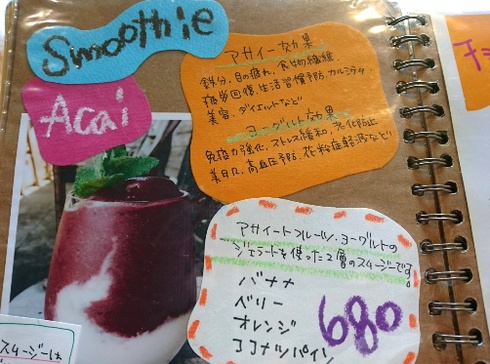 Smoothie
Acai
アサイー効果
鉄分、目の疲れ、食物繊維
疲労回復、生活習慣予防、カルシウム
美容、ダイエットなど
ヨーグルト効果
免疫力強化、ストレス緩和、老化防止
美白、高血圧予防、花粉症軽減など
アサイーとフルーツ、ヨーグルトの
ジェラートを使った2層のスムージーです。
バナナ
ベリー
オレンジ
ココナツパイン
680
スムージーは
チョ